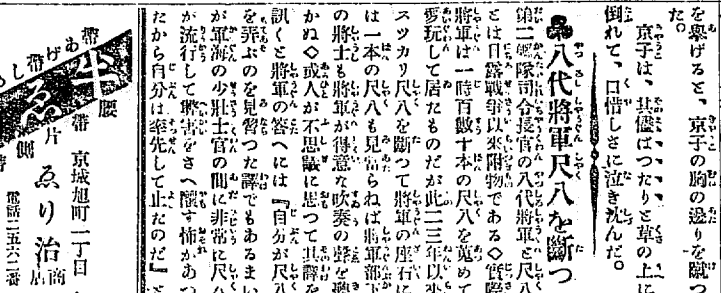 を擧げると、京子の胸の邊りを蹴つ
た。
京子は、其儘ばつたりと草の上に
倒れて、口惜しさに泣き沈んだ。
八代將軍尺八を斷つ
第二艦隊司令長官の八代將軍と尺八
とは日露戰爭以來附物である◇實際
將軍は一時百數十本の尺八を蒐めて
愛玩して居たものだが此二三年以來
スツカリ尺八を斷つて將軍の座右に
は一本の尺八も見當らねば將軍部下
の將士も將軍が得意な吹奏の聲を聽
かぬ◇或人が不思議に思つて其譯を
訊くと將軍の答へには『自分が尺八
を弄ぶのを見習つた譯でもあるまい
が軍海の少壯士官の間に非常に尺八
が流行して弊害をさへ釀す怖があつ
だから自分は率先して止たのだ』と
腰帶
半ゑり
帶あげ
片側帶
京城旭町一丁目
ゑり治商店
電話二五六二番